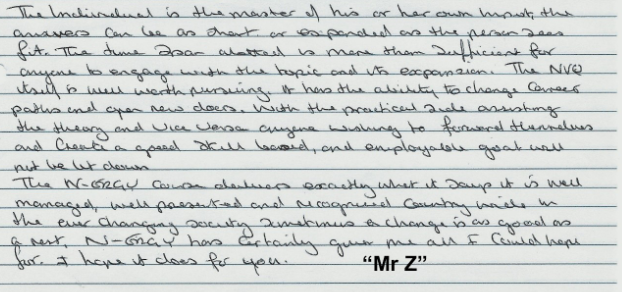 The Individual is the master of his or her own Input, the
answers can be as short or expanded as the person sees
fit. The time span allotted is more than sufficient for
anyone to engage with the topic and its expansion. The NVQ
itself is well worth pursuing. It has the ability to change Career
paths and open new doors. With the practical side assisting
the theory and vice versa anyone wishing to forward themselves
and Create a good skill based, and employable goal will
not be let down
The N-ERGY Course delivers exactly what it says it is well
managed, well presented and recognised Country wide in
the ever changing society sometimes a change is as good as
a rest, N-ERGY has Certainly given me all I Could hope
for. I hope it does for you. “Mr Z”